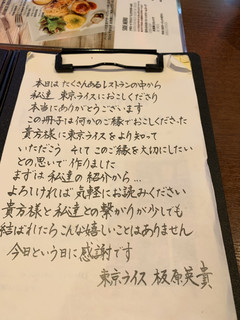 本日は たくさんあるレストランの中から
私達 東京ライスにおこしくださり
本当にありがとうございます
この冊子は何かのご縁でおこしくださった
貴方様に東京ライスをより知って
いただこう そしてこのご縁を大切にしたい
との思いで作りました
まずは私達の紹介から…
よろしければ気軽にお読みください
貴方様と私達との繋がりが少しでも
結ばれたらこんな嬉しいことはありません
今日という日に感謝です
東京ライス 板原英貴